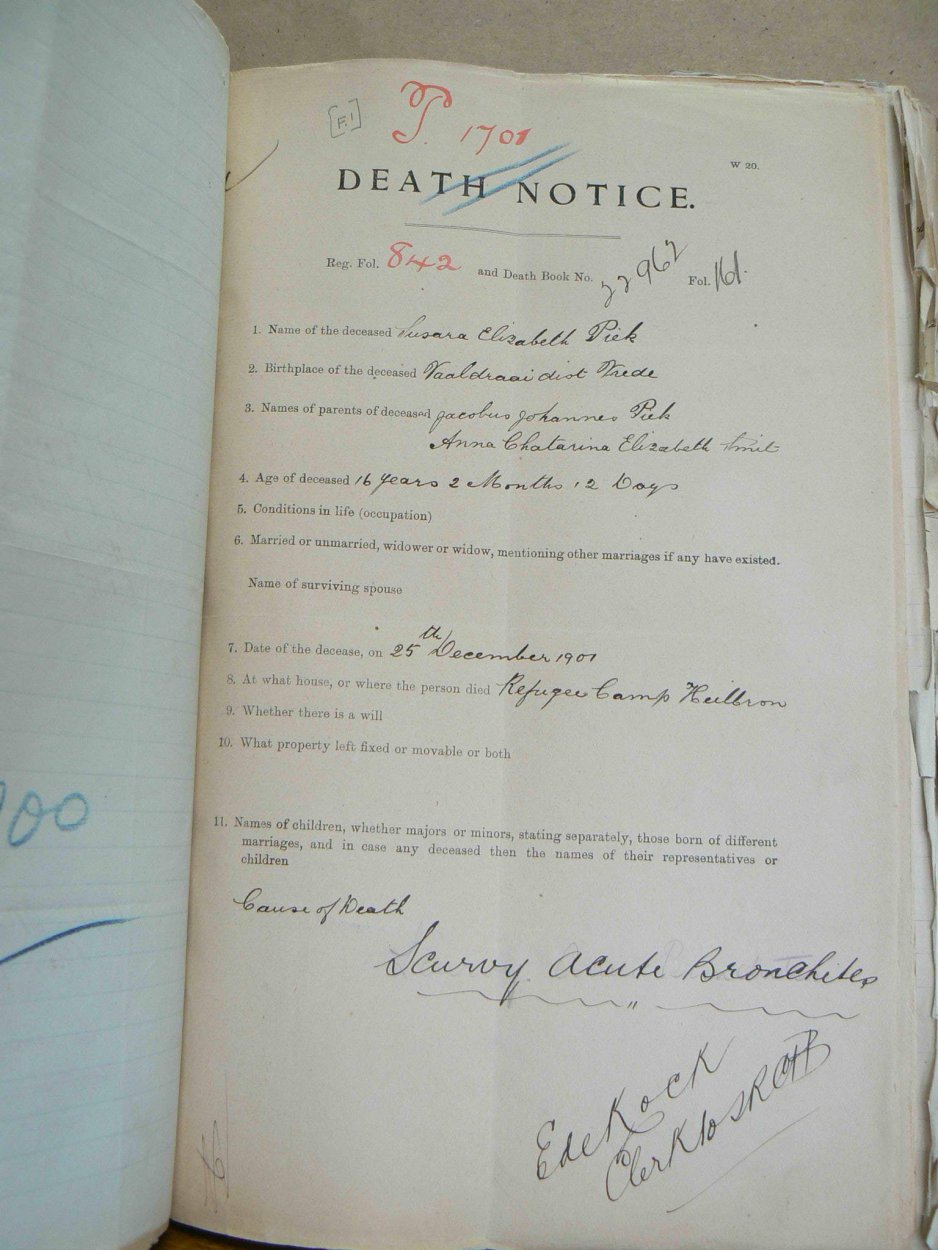 [F.1]
P. 1701
W 20.
DEATH NOTICE.
Reg. Fol. 842 and Death Book No. 22962 Fol. 161.
1. Name of the deceased Susara Elizabeth Piek
2. Birthplace of the deceased Vaaldraai dist Vrede
3. Names of parents of deceased Jacobus Johannes Piek
Anna Chatarina Elizabeth Smit
4. Age of deceased 16 years 2 Months 12 Days
5. Conditions in life (occupation)
6. Married or unmarried, widower or widow, mentioning other marriages if any have existed.
Name of surviving spouse
7. Date of the decease, on 25th December 1901
8. At what house, or where the person died Refugee Camp Heilbron
9. Whether there is a will
10. What property left fixed or movable or both
00
11. Names of children, whether majors or minors, stating separately, those born of different
marriages, and in case any deceased then the names of their representatives or
children
Cause of Death
Scurvy Acute Bronchites
E de Kock
Clerk to